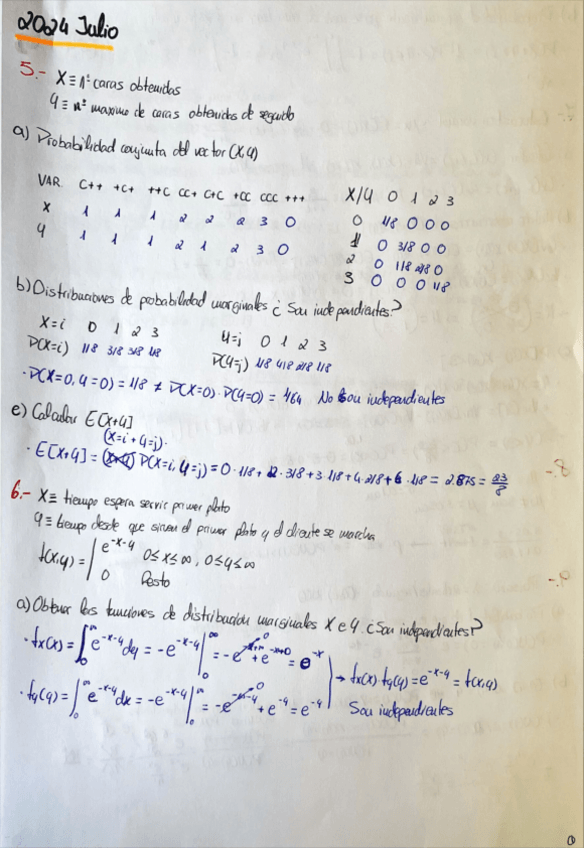 2024 Julio
5.- X ≡ nº caras obtenidas
Y ≡ nº maximo de caras obtenidas de seguido
a) Probabilidad conjunta del vector (X,Y)
VAR. C++ +C+ ++C CC+ C+C +CC CCC +++
X 1 1 1 2 2 2 3 0
Y 1 1 1 2 1 2 3 0
X/Y 0 1 2 3
0 1/8 0 0 0
1 0 3/8 0 0
2 0 1/8 2/8 0
3 0 0 0 1/8
b) Distribuciones de probabilidad marginales ¿Son independientes?
X=i 0 1 2 3
P(X=i) 1/8 3/8 3/8 1/8
Y=j 0 1 2 3
P(Y=j) 1/8 4/8 2/8 1/8
· P(X=0, Y=0) = 1/8 ≠ P(X=0) · P(Y=0) = 1/64 No son independientes
c) Calcular E[X+Y]
(X=i + Y=j) ·
· E[X+Y] = P(X=i, Y=j) = 0 · 1/8 + 2 · 3/8 + 3 · 1/8 + 4 · 2/8 + 6 · 1/8 = 2.875 = 23/8
6.- X ≡ tiempo espera servir primer plato
Y ≡ tiempo desde que sirven el primer plato y el cliente se marcha
f(x,y) = | e^-x-y 0≤x≤∞, 0≤y≤∞
0 Resto
a) Obtener las funciones de distribución marginales X e Y. ¿Son independientes?
· fx(x) = ∫₀^∞ e^-x-y dy = -e^-x-y |₀^∞ = -e^-x-∞ + e^-x+0 = e^-x
→ fx(x) · fy(y) = e^-x-y = f(x,y)
· fy(y) = ∫₀^∞ e^-x-y dx = -e^-x-y |₀^∞ = -e^-∞-y + e^-y = e^-y
Son independientes